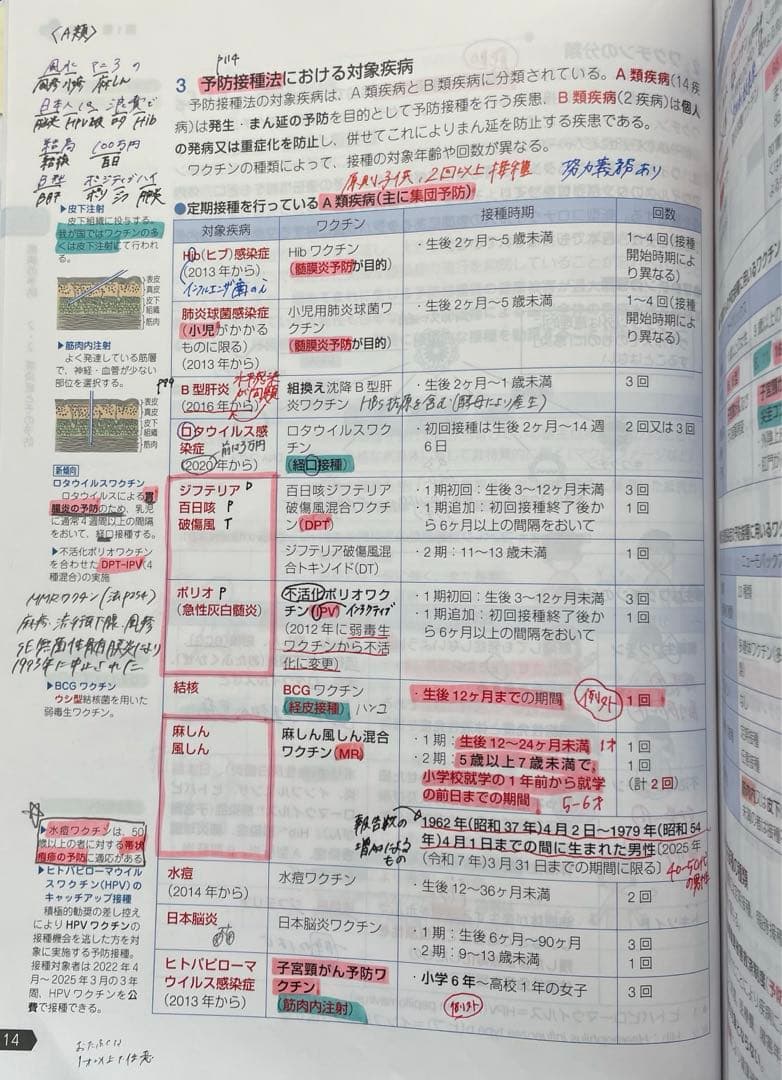 〈A類〉
p114
3 予防接種法における対象疾病
予防接種法の対象疾病は、A類疾病とB類疾病に分類されている。A類疾病(14疾
病)は発生・まん延の予防を目的として予防接種を行う疾患、B類疾病(2疾病)は個人
の発病又は重症化を防止し、併せてこれによりまん延を防止する疾患である。
ワクチンの種類によって、接種の対象年齢や回数が異なる。
原則子供、2回以上接種
努力義務あり
●定期接種を行っているA類疾病(主に集団予防)
対象疾病 ワクチン 接種時期 回数
Hib(ヒブ)感染症
(2013年から)
インフルエンザ菌のb
Hibワクチン
(髄膜炎予防が目的)
・生後2ヶ月～5歳未満
1～4回(接種
開始時期によ
り異なる)
肺炎球菌感染症
(小児がかかる
ものに限る)
(2013年から)
小児用肺炎球菌ワ
クチン
(髄膜炎予防が目的)
・生後2ヶ月～5歳未満
1～4回(接種
開始時期によ
り異なる)
B型肝炎
(2016年から)
組換え沈降B型肝
炎ワクチン
HBs抗原を含む(酵母により産生)
・生後2ヶ月～1歳未満
3回
ロタウイルス感
染症
(2020年から)
前は3万円
ロタウイルスワク
チン
(経口接種)
・初回接種は生後2ヶ月～14週
6日
2回又は3回
ジフテリア D
百日咳 P
破傷風 T
百日咳ジフテリア
破傷風混合ワクチ
ン(DPT)
・1期初回：生後3～12ヶ月未満
・1期追加：初回接種終了後か
ら6ヶ月以上の間隔をおいて
3回
1回
ジフテリア破傷風混
合トキソイド(DT)
・2期：11～13歳未満
1回
ポリオ P
(急性灰白髄炎)
不活化ポリオワク
チン(IPV)
(2012年に弱毒生
ワクチンから不活
化に変更)
・1期初回：生後3～12ヶ月未満
・1期追加：初回接種終了後か
ら6ヶ月以上の間隔をおいて
3回
1回
結核
BCGワクチン
(経皮接種) ハンコ
・生後12ヶ月までの期間
1回
麻しん
風しん
麻しん風しん混合
ワクチン(MR)
・1期：生後12～24ヶ月未満 1才
・2期：5歳以上7歳未満で、
小学校就学の1年前から就学
の前日までの期間
5-6才
1回
1回
(計2回)
報告数の
増加による
もの
1962年(昭和37年)4月2日～1979年(昭和54
年)4月1日までの間に生まれた男性(2025年
(令和7年)3月31日までの期間に限る)
40-50代
の男性
水痘
(2014年から)
水痘ワクチン
・生後12～36ヶ月未満
2回
日本脳炎
日本脳炎ワクチン
・1期：生後6ヶ月～90ヶ月
・2期：9～13歳未満
3回
1回
ヒトパピローマ
ウイルス感染症
(2013年から)
子宮頸がん予防ワ
クチン
(筋肉内注射)
・小学6年～高校1年の女子
3回
▶皮下注射
皮下組織に投与する。
我が国ではワクチンの多
くは皮下注射にて行われ
る。
表皮
真皮
皮下
組織
筋肉
▶筋肉内注射
よく発達している筋層
で、神経・血管が少ない
部位を選択する。
表皮
真皮
皮下
組織
筋肉
新傾向
ロタウイルスワクチン
ロタウイルスによる胃
腸炎の予防のため、乳児
に通常4週間以上の間隔
をおいて、経口接種する。
▶不活化ポリオワクチン
を合わせたDPT-IPV(4
種混合)の実施
MMRワクチン
1993年に中止された
▶BCGワクチン
ウシ型結核菌を用いた
弱毒生ワクチン。
▶水痘ワクチンは、50
歳以上の者に対する帯状
疱疹の予防に適応がある。
▶ヒトパピローマウイル
スワクチン(HPV)の
キャッチアップ接種
積極的勧奨の差し控え
によりHPVワクチンの
接種機会を逃した方を対
象に実施する予防接種。
接種対象者は2022年4
月～2025年3月の3年
間、HPVワクチンを公
費で接種できる。
14
おたふくは
1才以上で任意